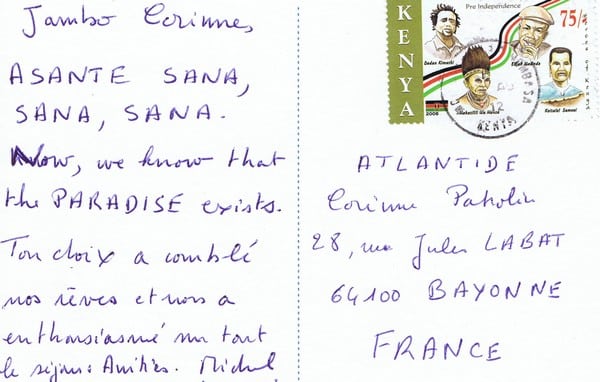 Jambo Corinne,
ASANTE SANA,
SANA, SANA.
Now, we know that
the PARADISE exists.
Ton choix a comblé
nos rêves et nous a
enthousiasmé sur tout
le séjour. Amitiés. Michel
KENYA
Pre Independence
75/-
Dedan Kimathi
Elijah Masinde
Koitalel Samoei
2008
MOMBASA
12
KENYA
ATLANTIDE
Corinne
28, rue Jules LABAT
64100 BAYONNE
FRANCE